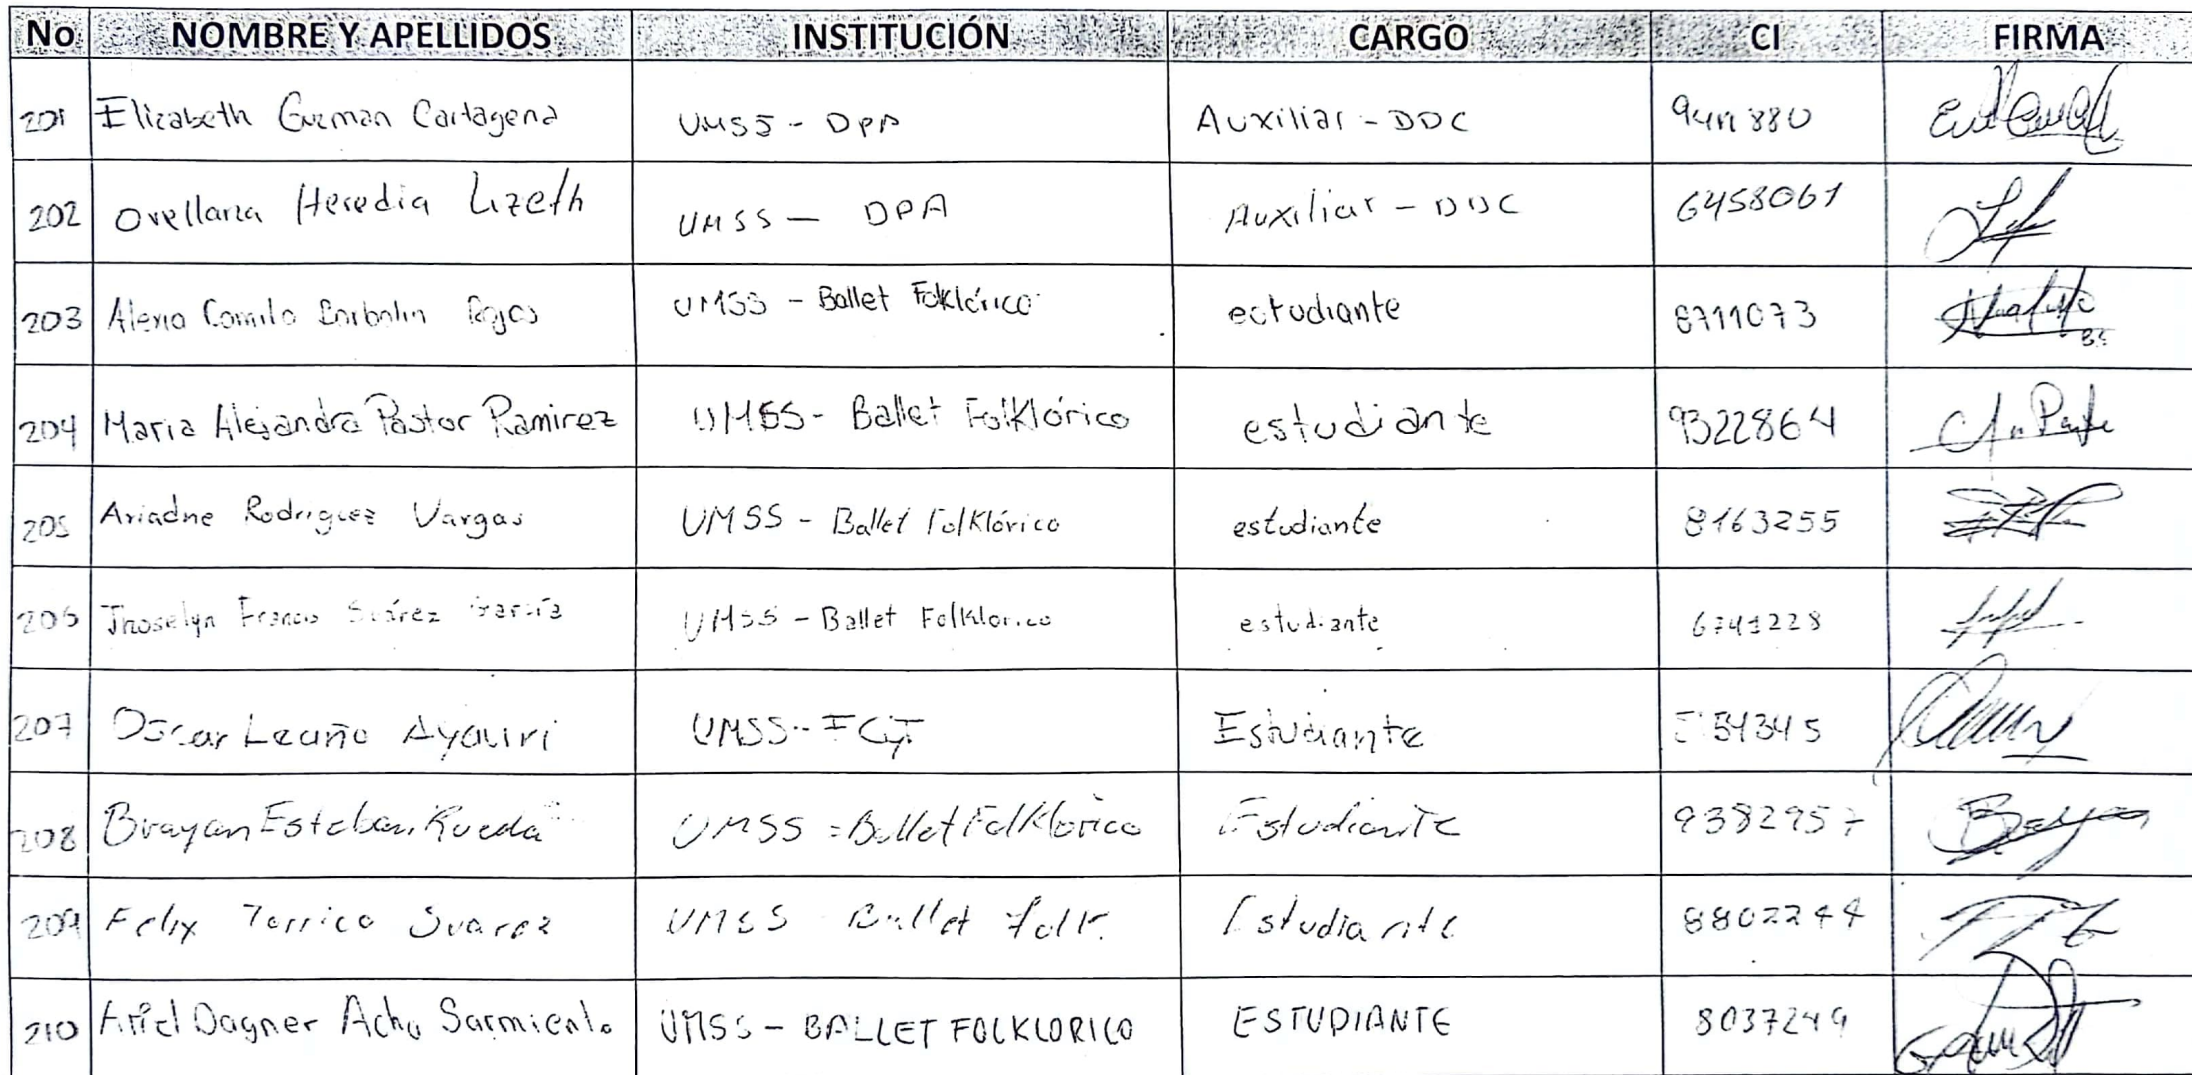 No NOMBRE Y APELLIDOS INSTITUCIÓN CARGO CI FIRMA
201 Elizabeth Guzman Cartagena UMSS - DPA Auxiliar - DDC 880
202 Orellana Heredia Lizeth UMSS — DPA Auxiliar - DDC 6458061
203 Alexia Camila Rojas UMSS - Ballet Folklórico estudiante 8711073
204 Maria Alejandra Pastor Ramirez UMSS - Ballet Folklórico estudiante 9322864
205 Ariadne Rodriguez Vargas UMSS - Ballet Folklórico estudiante 8163255
206 Jhoselyn Suárez UMSS - Ballet Folklorico estudiante 6741228
207 Oscar Leaño Ayaviri UMSS - FCyT Estudiante
208 Brayan Esteban Rueda UMSS - Ballet Folklórico Estudiante 9382957
209 Felix Torrico Suarez UMSS Ballet Folk. Estudiante 8802244
210 Ariel Dagner Acho Sarmiento UMSS - BALLET FOLKLORICO ESTUDIANTE 8037249